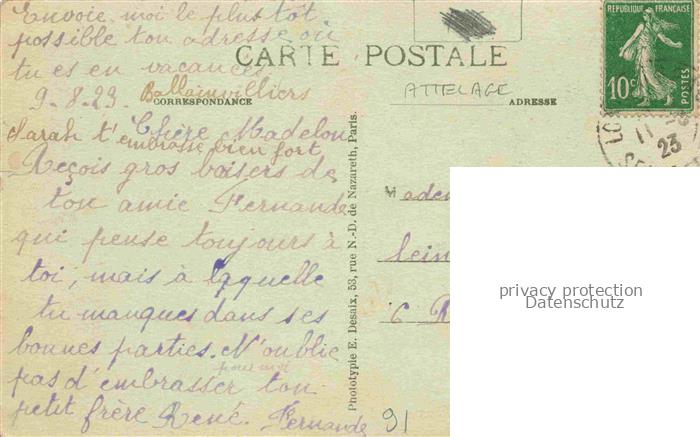 Envoie moi le plus tôt
possible ton adresse où
tu es en vacances
9-8-23. Ballainvilliers
CARTE POSTALE
ATTELAGE
CORRESPONDANCE
ADRESSE
RÉPUBLIQUE FRANÇAISE
10c
POSTES
11
23
Sarah t'embrasse bien fort
Chère Madelon
Reçois gros baisers de
ton amie Fernande
qui pense toujours à
toi, mais à laquelle
tu manques dans ses
bonnes parties. N'oublie
pas d'embrasser pour moi ton
petit frère René. Fernande
Phototypie E. Desaix, 53, rue N.-D. de Nazareth, Paris.
Madem
Sein
6 R
91
privacy protection
Datenschutz